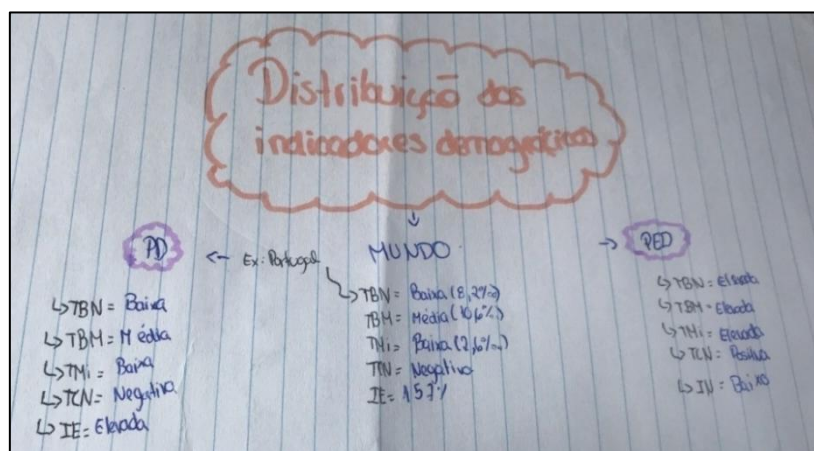 Distribuição dos
indicadores demográficos
PD
← Ex: Portugal
MUNDO
→ PED
↳ TBN = Baixa
↳ TBM = Média
↳ TMi = Baixa
↳ TCN = Negativa
↳ IE = Elevada
↳ TBN = Baixa (8,2‰)
TBM = Média (10,6‰)
TMi = Baixa (2,6‰)
TCN = Negativo
IE = 157%
↳ TBN = Elevada
↳ TBM = Elevada
↳ TMi = Elevada
↳ TCN = Positiva
↳ IN = Baixo